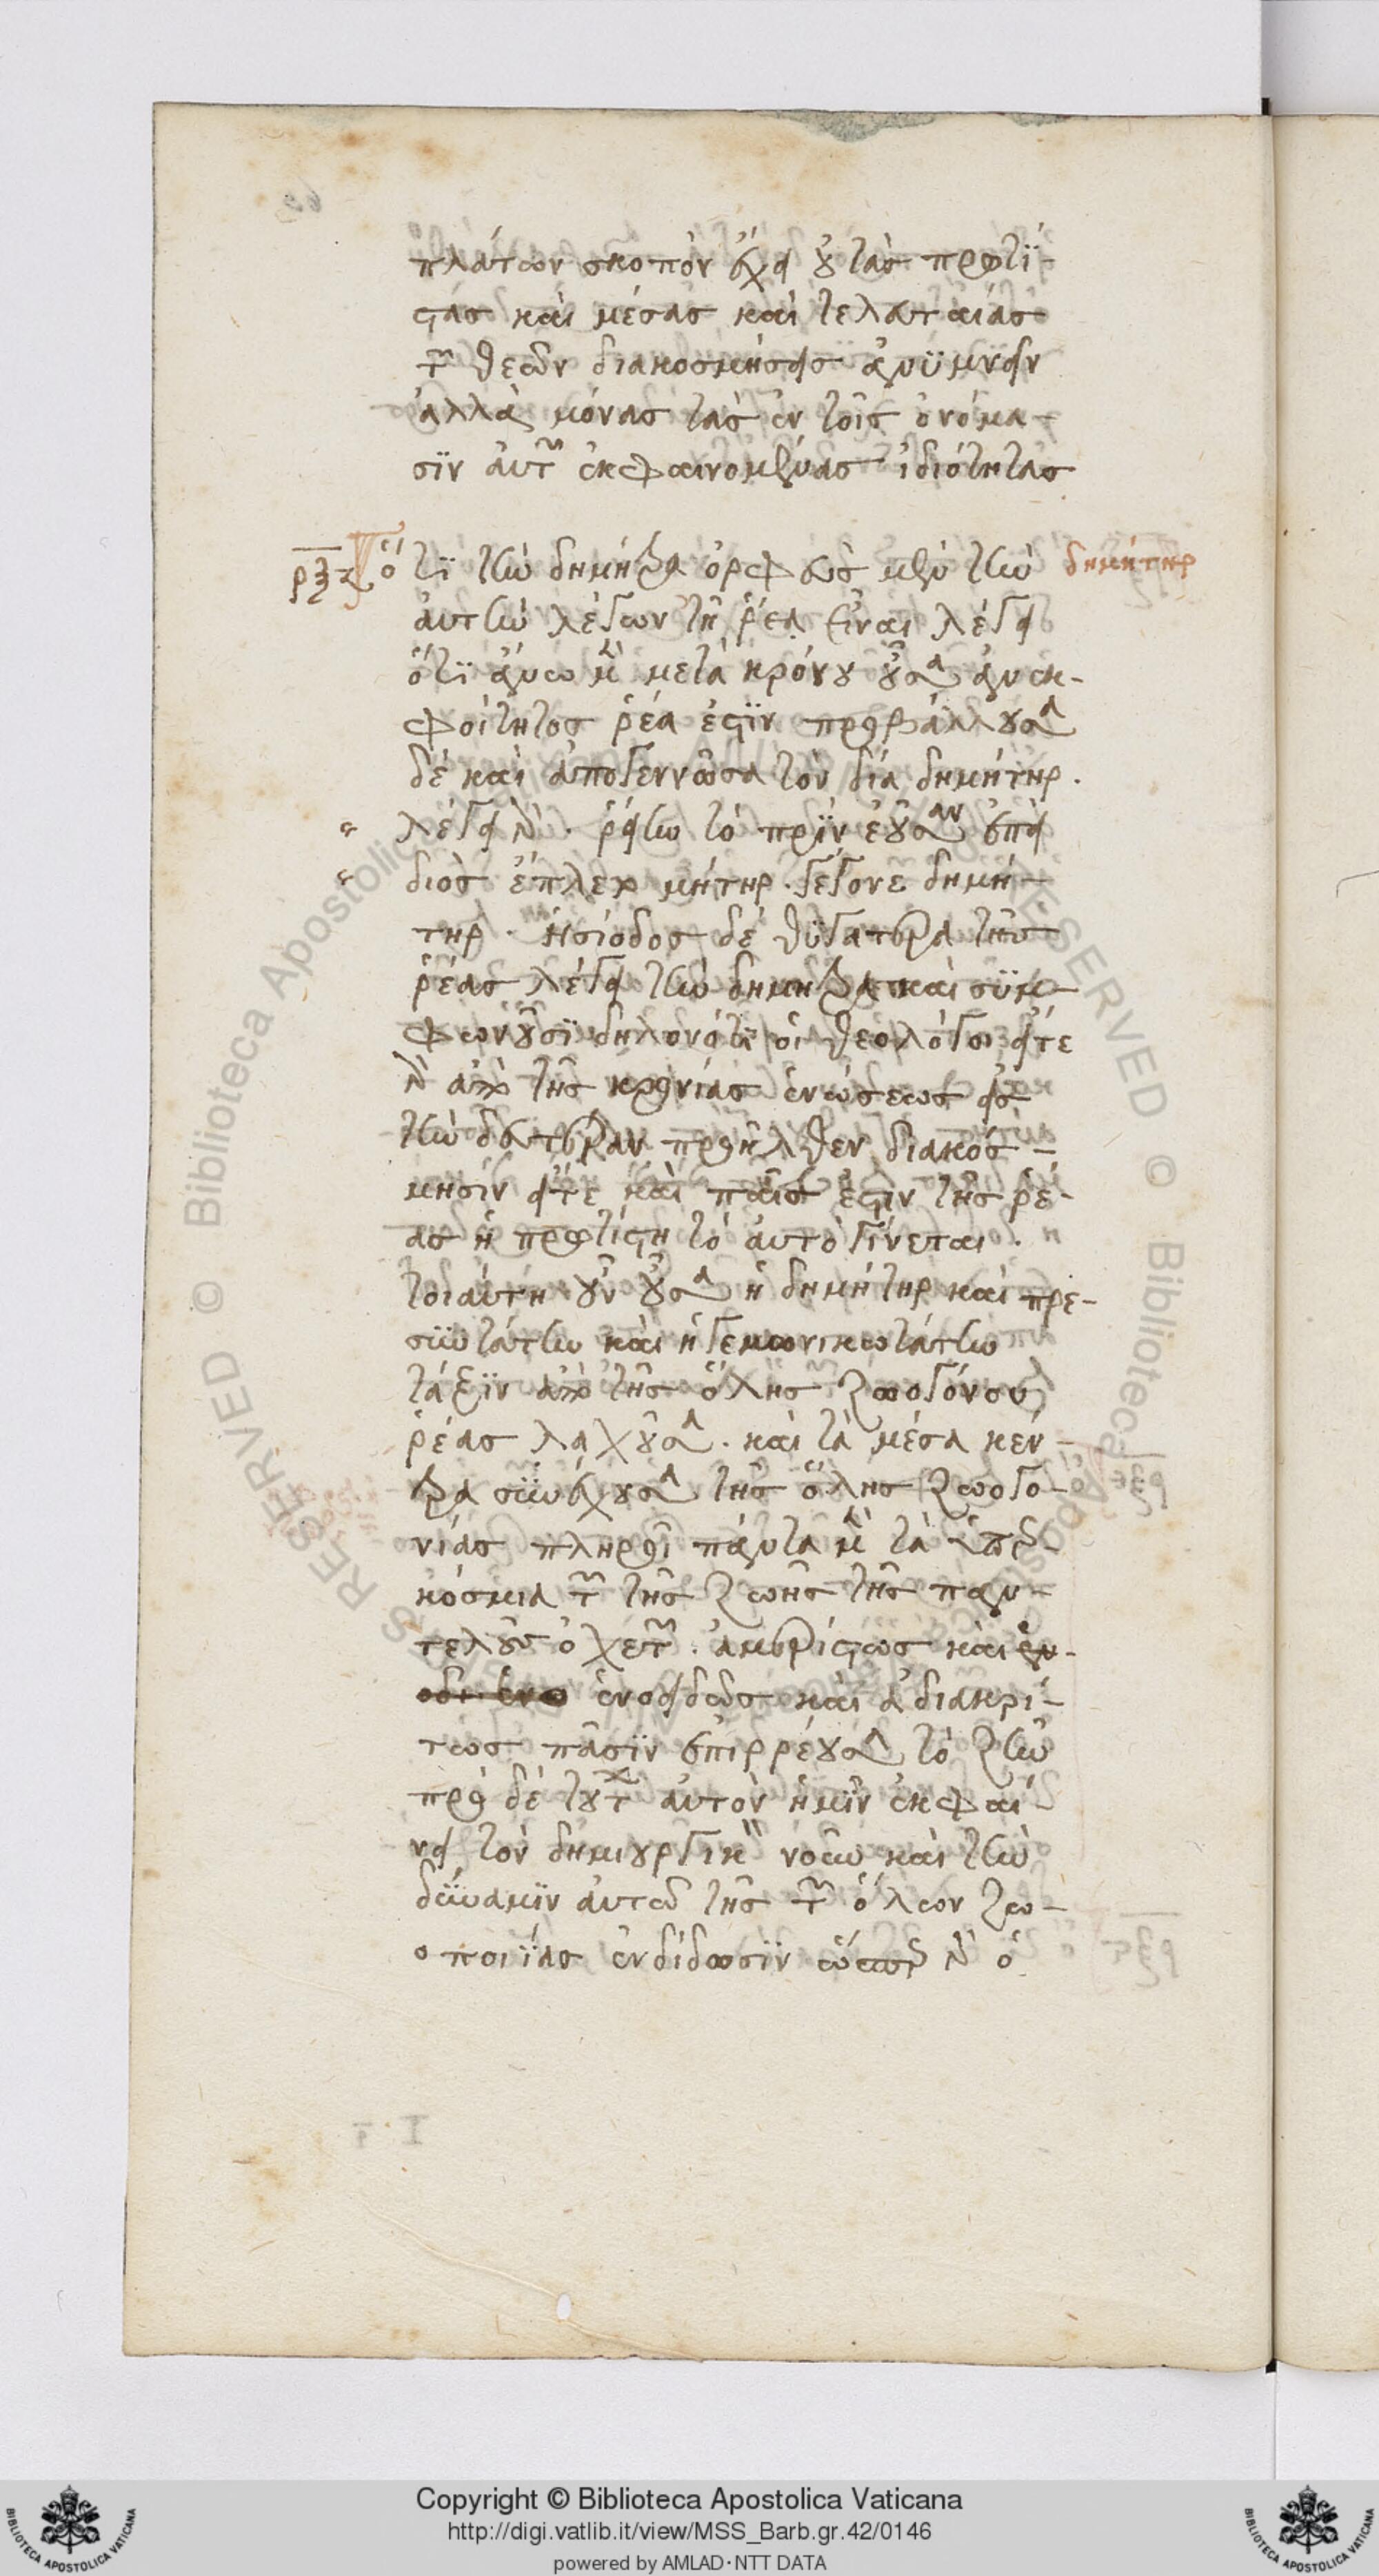 πλάτων σκοπὸν ἔχει οὐ τὰς πρωτί-
στας καὶ μέσας καὶ τελευταίας
τῶν θεῶν διακοσμήσεις ἀνυμνεῖν
ἀλλὰ μόνας τὰς ἐν τοῖς ὀνόμα-
σιν αὐτῶν ἐκφαινομένας ἰδιότητας
ρξζ ὅτι τὴν δημήτρα ὀρφεὺς μὲν τὴν δημήτηρ
αὐτὴν λέγων τῆ ῥέα εἶναι λέγει
ὅτι ἄνω μὲν μετὰ κρόνου οὖσα ἀνεκ-
φοίτητος ῥέα ἐστὶν προβάλλουσα
δὲ καὶ ἀπογεννῶσα τὸν δία δημήτηρ.
λέγει γὰρ. ῥείην τὸ πρὶν ἐοῦσαν ἐπεὶ
διὸς ἔπλετο μήτηρ. γέγονε δημή-
τηρ. ἡσίοδος δὲ θυγατέρα τῆς
ῥέας λέγει τὴν δημήτρα καὶ συμ-
φωνοῦσι δηλονότι οἱ θεολόγοι εἴτε
γὰρ ἀπὸ τῆς κρονίας ἑνώσεως εἰς
τὴν δευτέραν προῆλθεν διακόσ-
μησιν εἴτε καὶ παῖς ἐστιν τῆς ῥέ-
ας ἡ πρωτίστη τὸ αὐτὸ γίνεται.
τοιαύτη οὖν οὖσα ἡ δημήτηρ καὶ πρε-
συτάτην καὶ ἡγεμονικωτάτην
τάξιν ἀπὸ τῆς ὅλης ζωογόνου
ῥέας λαχοῦσα. καὶ τὰ μέσα κέν-
τρα συνέχουσα τῆς ὅλης ζωογο-
νίας πληροῖ πάντα μὲν τὰ ὑπερ-
κόσμια τῶν τῆς ζωῆς τῆς παν-
τελοῦς ὀχετῶν. ἀμερίστως καὶ
ἑνοειδῶς καὶ ἀδιακρί-
τως πᾶσιν ἐπιρρέουσα τὸ ζῆν
πρὸ δὲ τούτων αὐτὸν ἡμῖν ἐκφαί-
νει τὸν δημιουργικὸν νοῦν καὶ τὴν
δύναμιν αὐτῶ τῆς τῶν ὅλων ζω-
οποιίας ἐνδίδωσιν ὥσπερ γὰρ ὁ
Copyright © Biblioteca Apostolica Vaticana
http://digi.vatlib.it/view/MSS_Barb.gr.42/0146
powered by AMLAD·NTT DATA